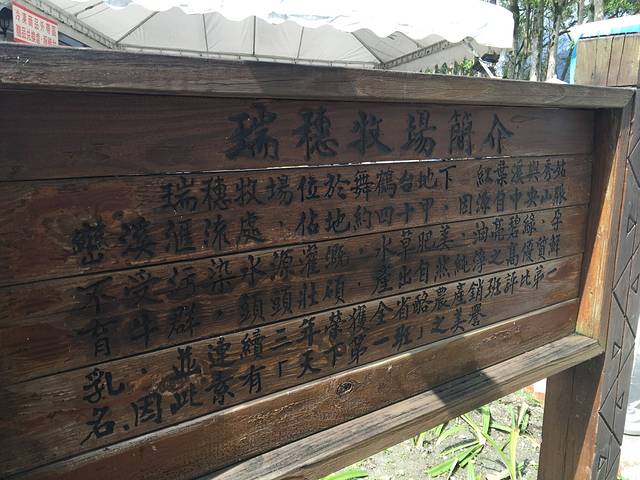 冷凍商品外帶區
瑞穗牧場簡介
瑞穗牧場位於舞鶴台地下 紅葉溪與秀姑
巒溪滙流處，佔地約四十甲，因源自中央山脈
不受污染水源灌溉，水草肥美，油亮碧綠，孕
育牛群，頭頭壯碩，產出自然純淨之高優質鮮
乳，並連續三年榮獲全省酪農產銷班評比第一
名，因此素有「天下第一班」之美譽